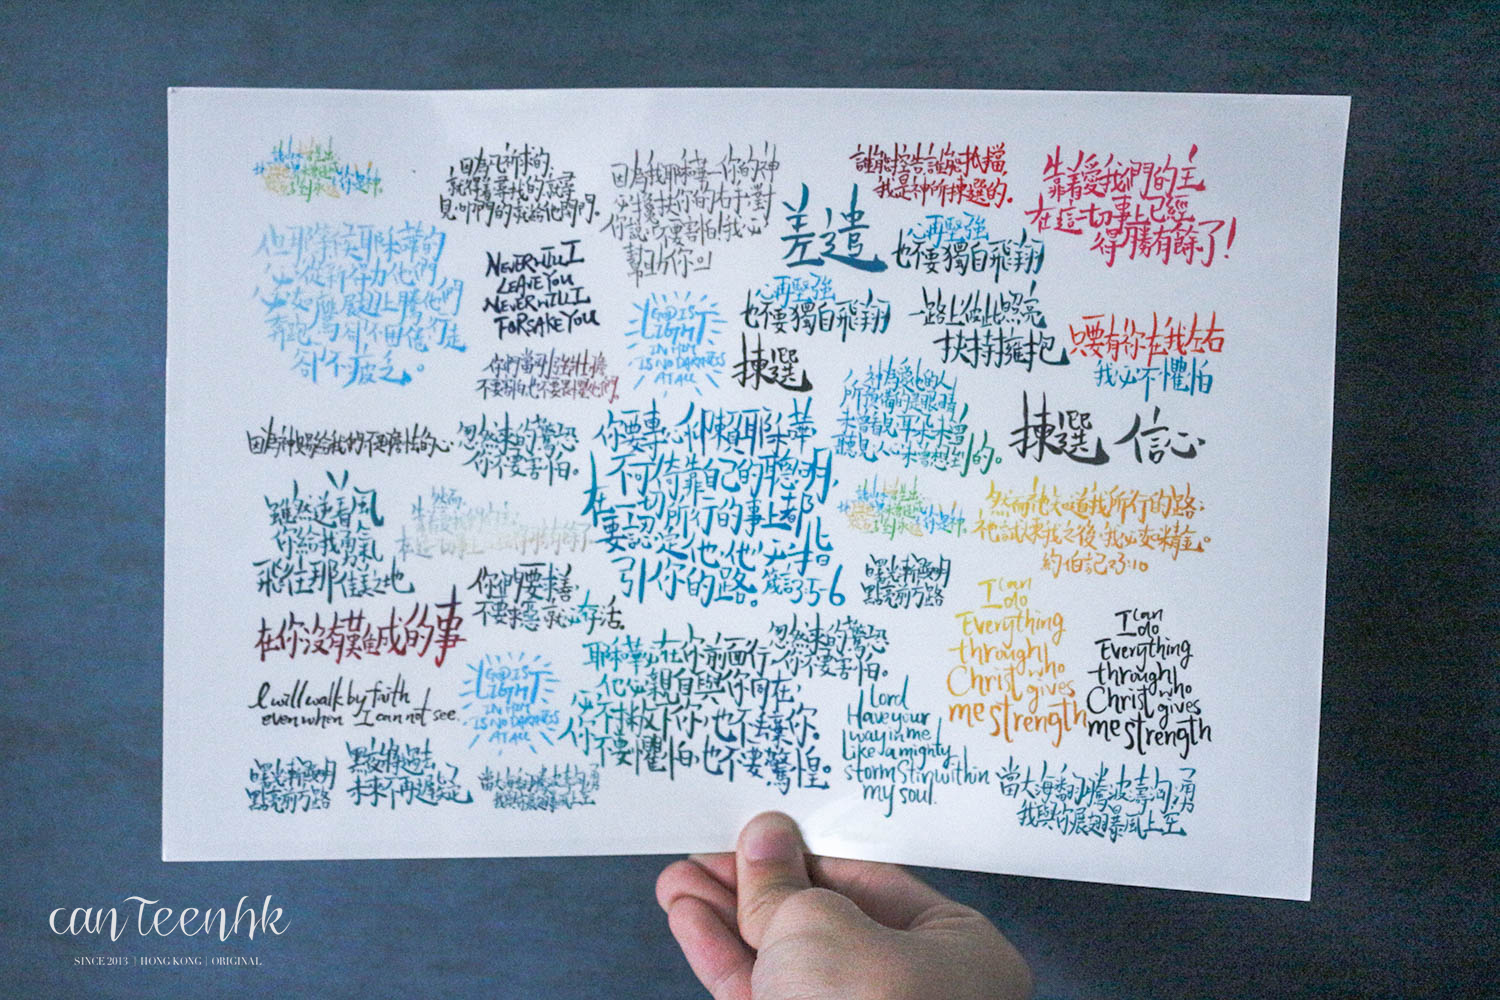 你是神。
因為凡祈求的,
就得著尋找的就尋
見叩門的就給他開門。
因為我耶和華─你的神
必攙扶你的右手對
你說:不要害怕!我必
幫助你。」
誰能控告誰能抵擋
我是神所揀選的。
靠着愛我們的主
在這一切事上已經
得勝有餘了!
差遣
心再堅強
也不要獨自飛翔
但那等候耶和華的
必從新得力他們
必如鷹展翅上騰他們
奔跑
卻不疲乏。
NEVER WILL I
LEAVE YOU
NEVER WILL I
FORSAKE YOU
GOD IS
LIGHT
IN HIM
IS NO DARKNESS
AT ALL
心再堅強
也不要獨自飛翔
一路上彼此照亮
扶持擁抱
只要有祢在我左右
我必不懼怕
你們當剛強壯膽
不要害怕,也不要畏懼他們。
揀選
神為愛他的人
所預備的是眼睛
未曾看見耳朵未曾
聽見人心未曾想到的。
揀選
信心
因為神賜給我們不是膽怯的心
忽然來的驚恐
你不要害怕。
你要專心仰賴耶和華
不可倚靠自己的聰明,
在一切所行的事上都
要認定他他必指
引你的路。箴言3:5-6
雖然逆着風
你給我勇氣
飛往那佳美之地
然而,
靠着愛我們的主,
在這一切事上已經得勝有餘了。
你是神。
然而他知道我所行的路;
祂試煉我之後,我必如精金。
約伯記23:10
你們要求善,
不要求惡就必存活。
曙光漸發明
點亮前方路
I can
I do
Everything
through
Christ who
gives
me strength
I can
I do
Everything
through
Christ who
gives
me strength
在你沒有難成的事
I will walk by faith
even when I can not see.
GOD IS
LIGHT
IN HIM
IS NO DARKNESS
AT ALL
耶和華必在你前面行,
他必親自與你同在,
必不撇下你,也不丟棄你。
你不要懼怕,也不要驚惶。
忽然來的驚恐
你不要害怕。
Lord
Have your
way in me
Like a mighty
storm Stir within
my soul.
曙光漸發明
點亮前方路
黑夜將過去
未來不再遲疑
當大海翻騰波濤洶湧
我與你展翅暴風上空
當大海翻騰波濤洶湧
我與你展翅暴風上空
canTeenhk
SINCE 2013 | HONG KONG | ORIGINAL